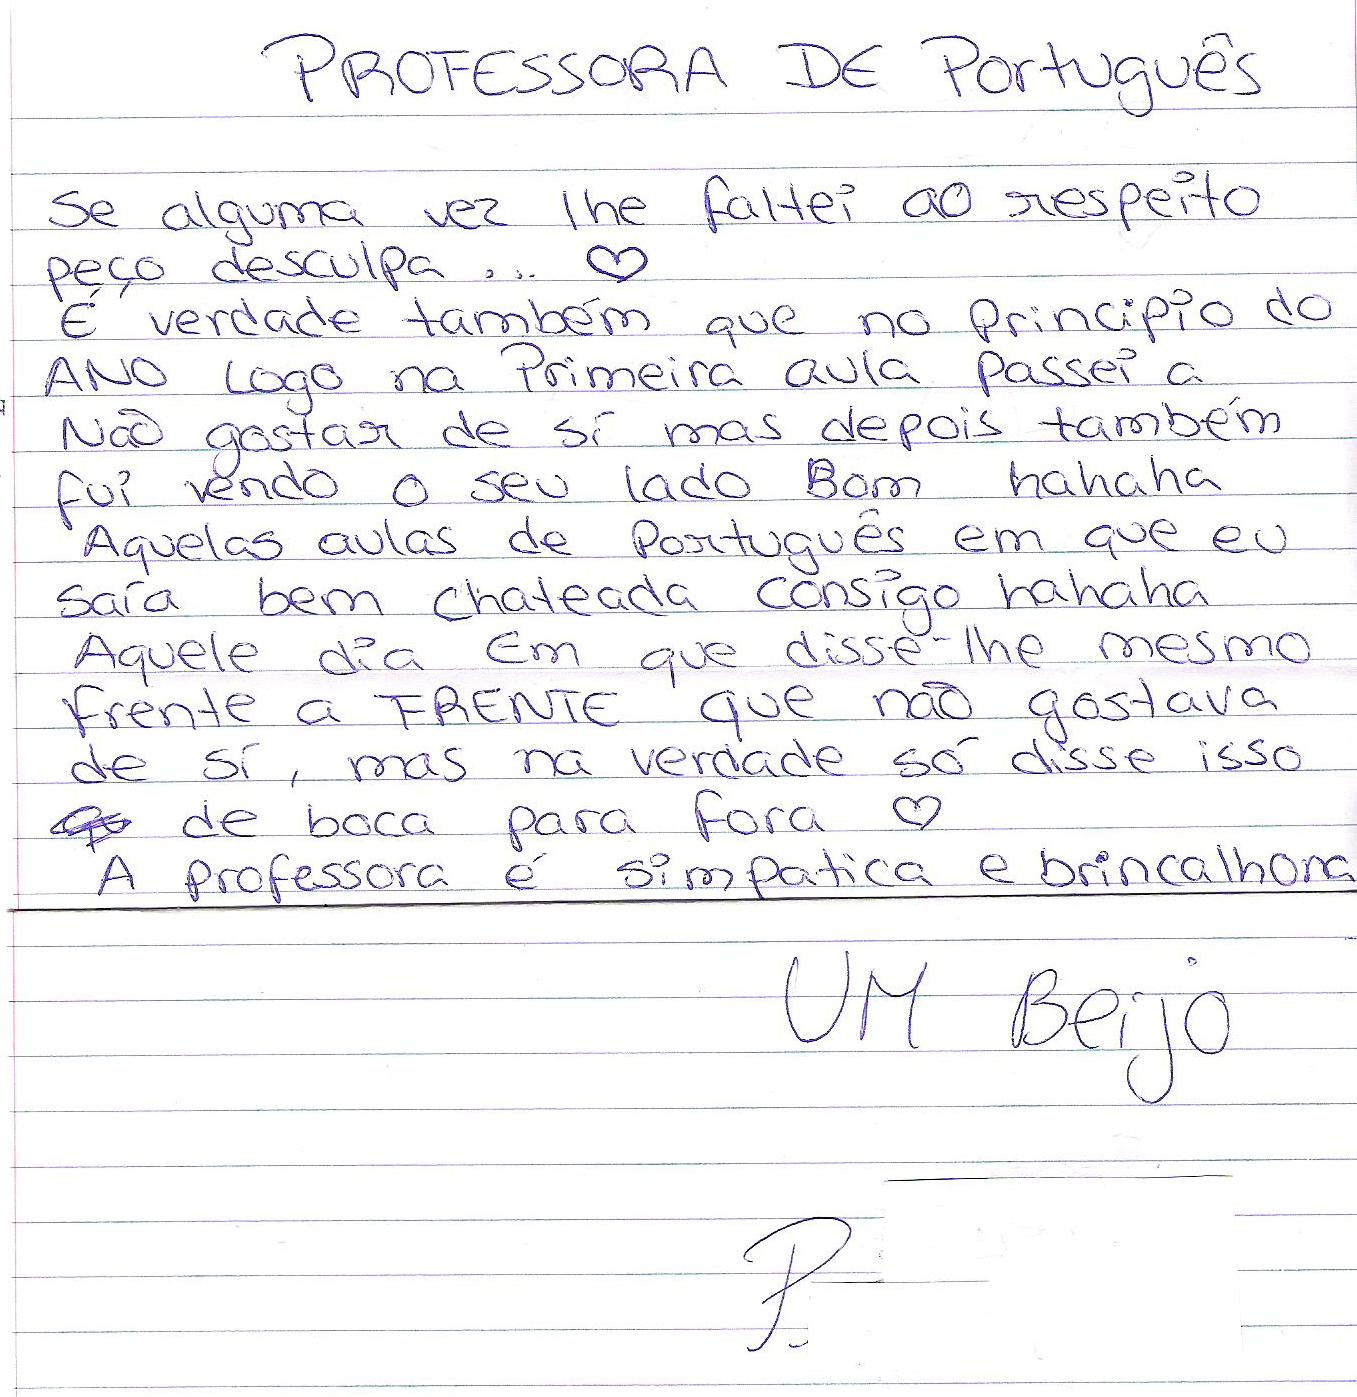 PROFESSORA DE Português
Se alguma vez lhe faltei ao respeito
peço desculpa ... ♡
É verdade também que no principio do
ANO Logo na Primeira aula passei a
Não gostar de sí mas depois também
fui vendo o seu lado Bom hahaha
Aquelas aulas de Português em que eu
saía bem chateada consigo hahaha
Aquele dia Em que disse-lhe mesmo
frente a FRENTE que não gostava
de sí, mas na verdade só disse isso
de boca para fora ♡
A professora é simpatica e brincalhona
UM Beijo
P.